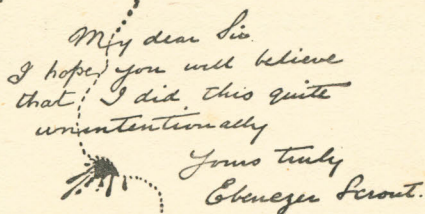 My dear Sir
I hope, you will believe
that I did this quite
unintentionally
Yours truly
Ebenezer Scrout.